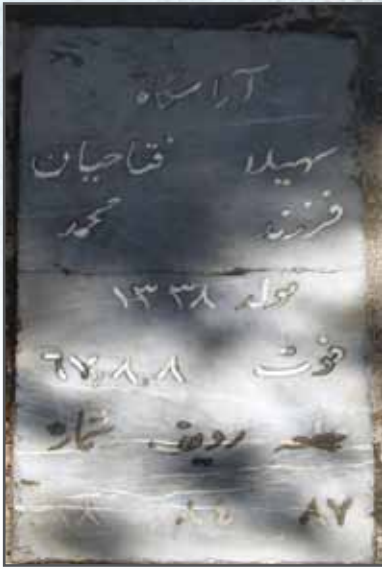 آرامگاه
سهیلا فتاحیان
فرزند محمد
تولد ۱۳۳۸
فوت ۶۷.۸.۸
قطعه ردیف شماره
۸۷